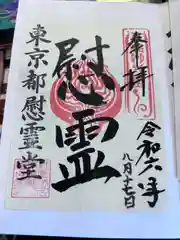 奉拝
慰霊
令和六年
八月十七日
東京都慰霊堂